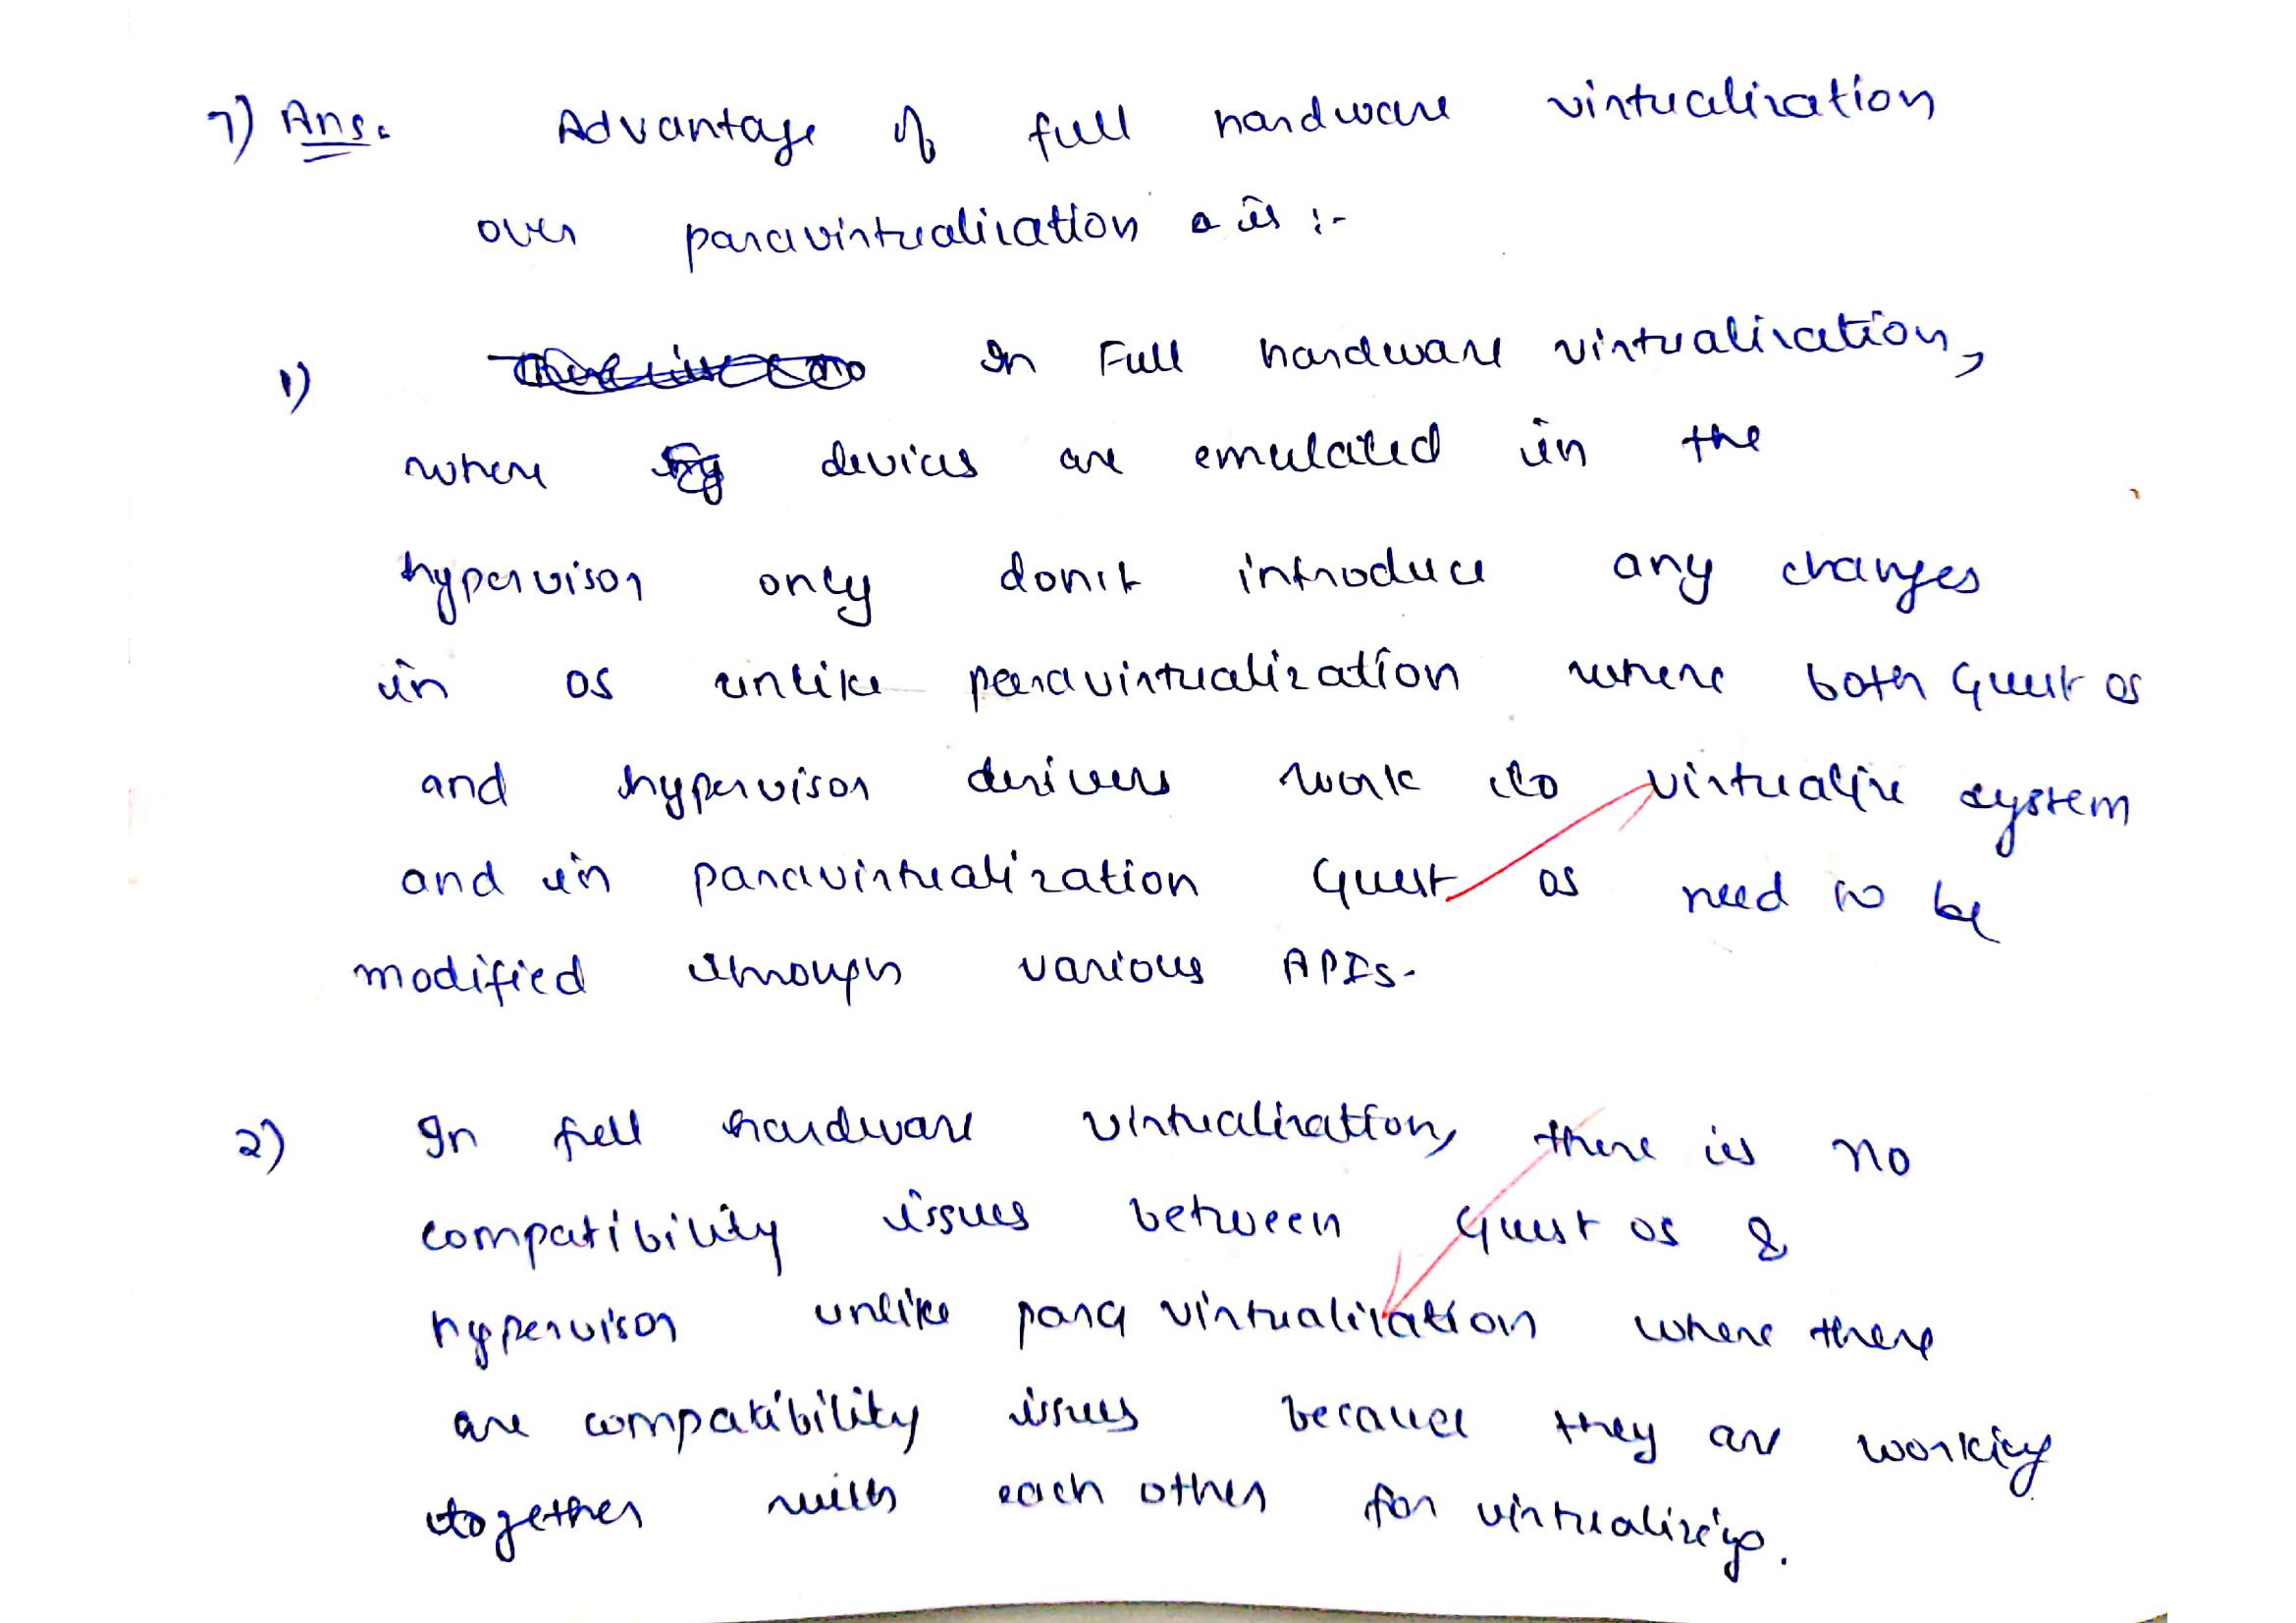 7) Ans. Advantage of full hardware virtualization
over paravirtualization is :-
1) In Full hardware virtualization,
where devices are emulated in the
hypervisor only don't introduce any changes
in os unlike paravirtualization where both Guest os
and hypervisor drivers work to virtualize system
and in paravirtualization Guest os need to be
modified through various APIs.
2) In full hardware virtualization, there is no
compatibility issues between Guest os &
hypervisor unlike para virtualization where there
are compatibility issues because they are working
together with each other for virtualizing.